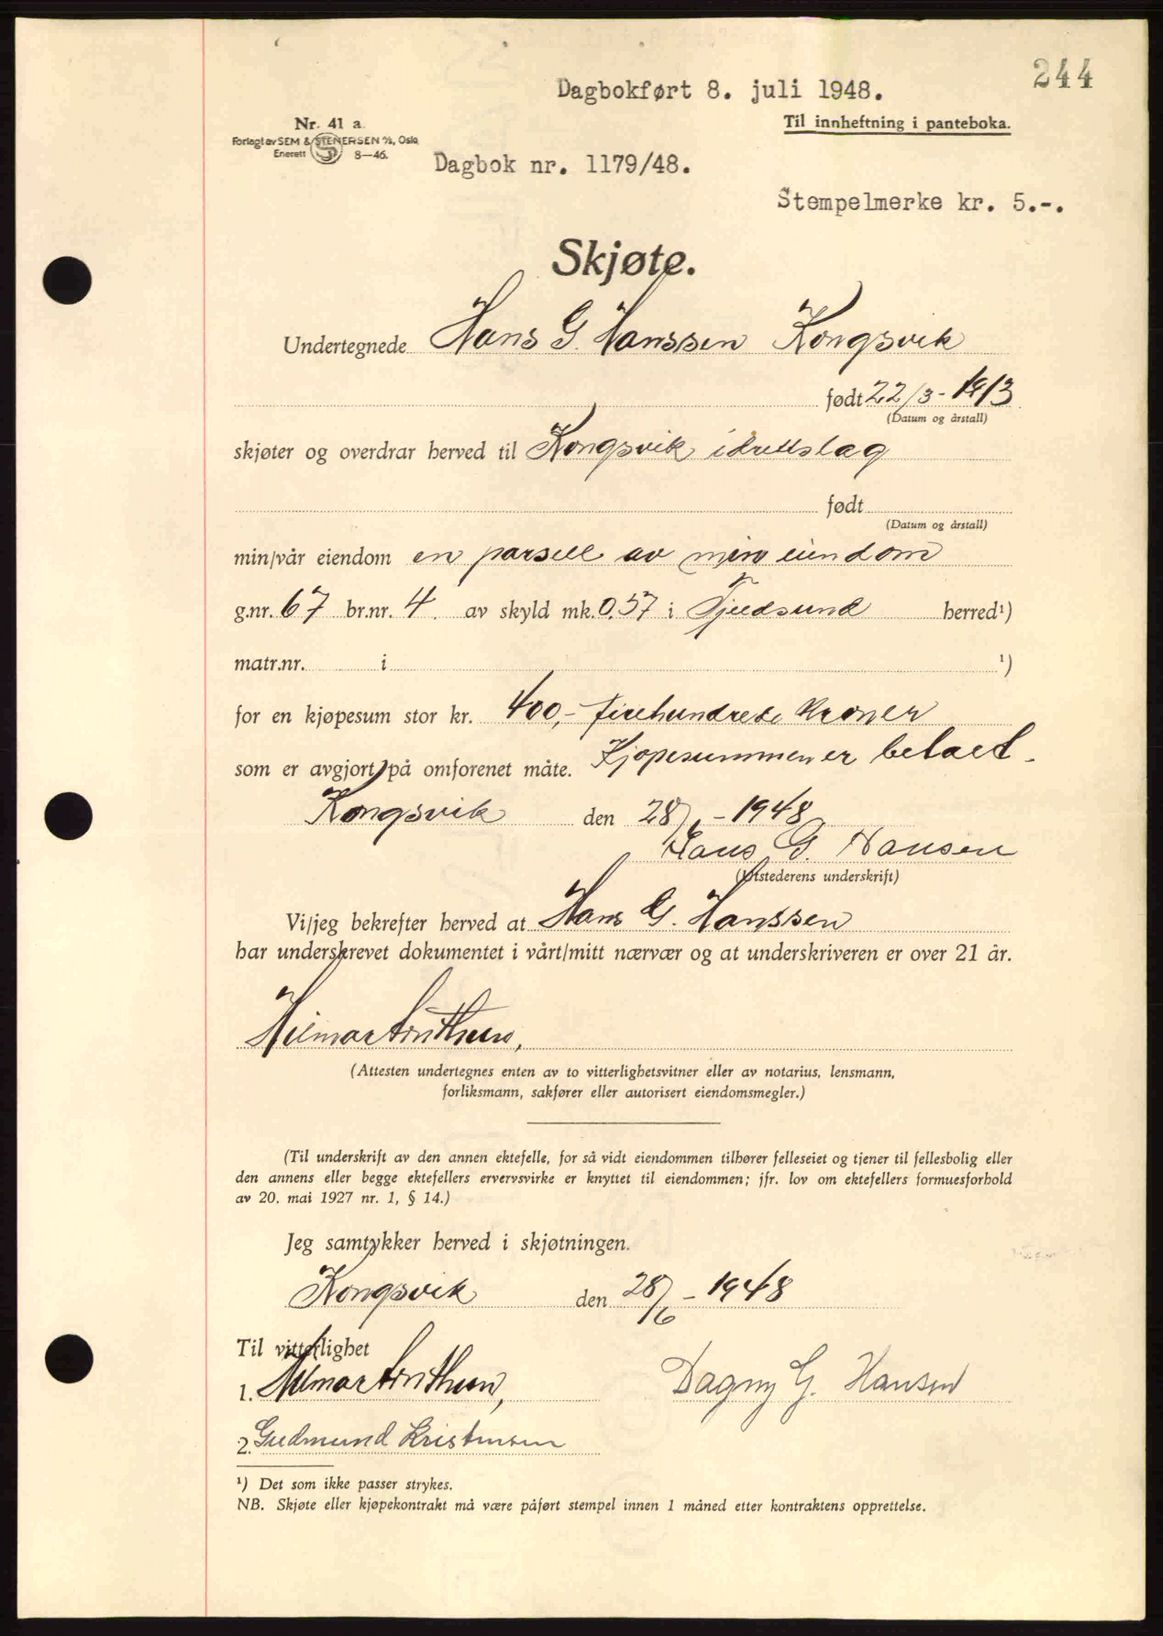 244
Dagbokført 8. juli 1948.
Til innheftning i panteboka.
Nr. 41 a.
Forlagt av SEM & STENERSEN A/S, Oslo
Enerett 8—46.
Dagbok nr. 1179/48.
Stempelmerke kr. 5.-.
Skjøte.
Undertegnede Hans G. Hanssen Kongsvik
født 22/3 - 1913
(Datum og årstall)
skjøter og overdrar herved til Kongsvik idrettslag
født
(Datum og årstall)
min/vår eiendom en parsell av min eiendom
g.nr. 67 br.nr. 4. av skyld mk. 0.57 i Tjeldsund herred¹)
matr.nr. i ¹)
for en kjøpesum stor kr. 400,- firehundrede kroner
som er avgjort på omforenet måte. Kjøpesummen er betalt.
Kongsvik den 28/6 - 1948
Hans G. Hansen
(Utstederens underskrift)
Vi/jeg bekrefter herved at Hans G. Hanssen
har underskrevet dokumentet i vårt/mitt nærvær og at underskriveren er over 21 år.
Hilmar
(Attesten undertegnes enten av to vitterlighetsvitner eller av notarius, lensmann,
forliksmann, sakfører eller autorisert eiendomsmegler.)
(Til underskrift av den annen ektefelle, for så vidt eiendommen tilhører felleseiet og tjener til fellesbolig eller
den annens eller begge ektefellers ervervsvirke er knyttet til eiendommen; jfr. lov om ektefellers formuesforhold
av 20. mai 1927 nr. 1, § 14.)
Jeg samtykker herved i skjøtningen.
Kongsvik den 28/6 - 1948
Til vitterlighet
1. Hilmar
Dagny G. Hansen
2. Gudmund Kristensen
¹) Det som ikke passer strykes.
NB. Skjøte eller kjøpekontrakt må være påført stempel innen 1 måned etter kontraktens opprettelse.